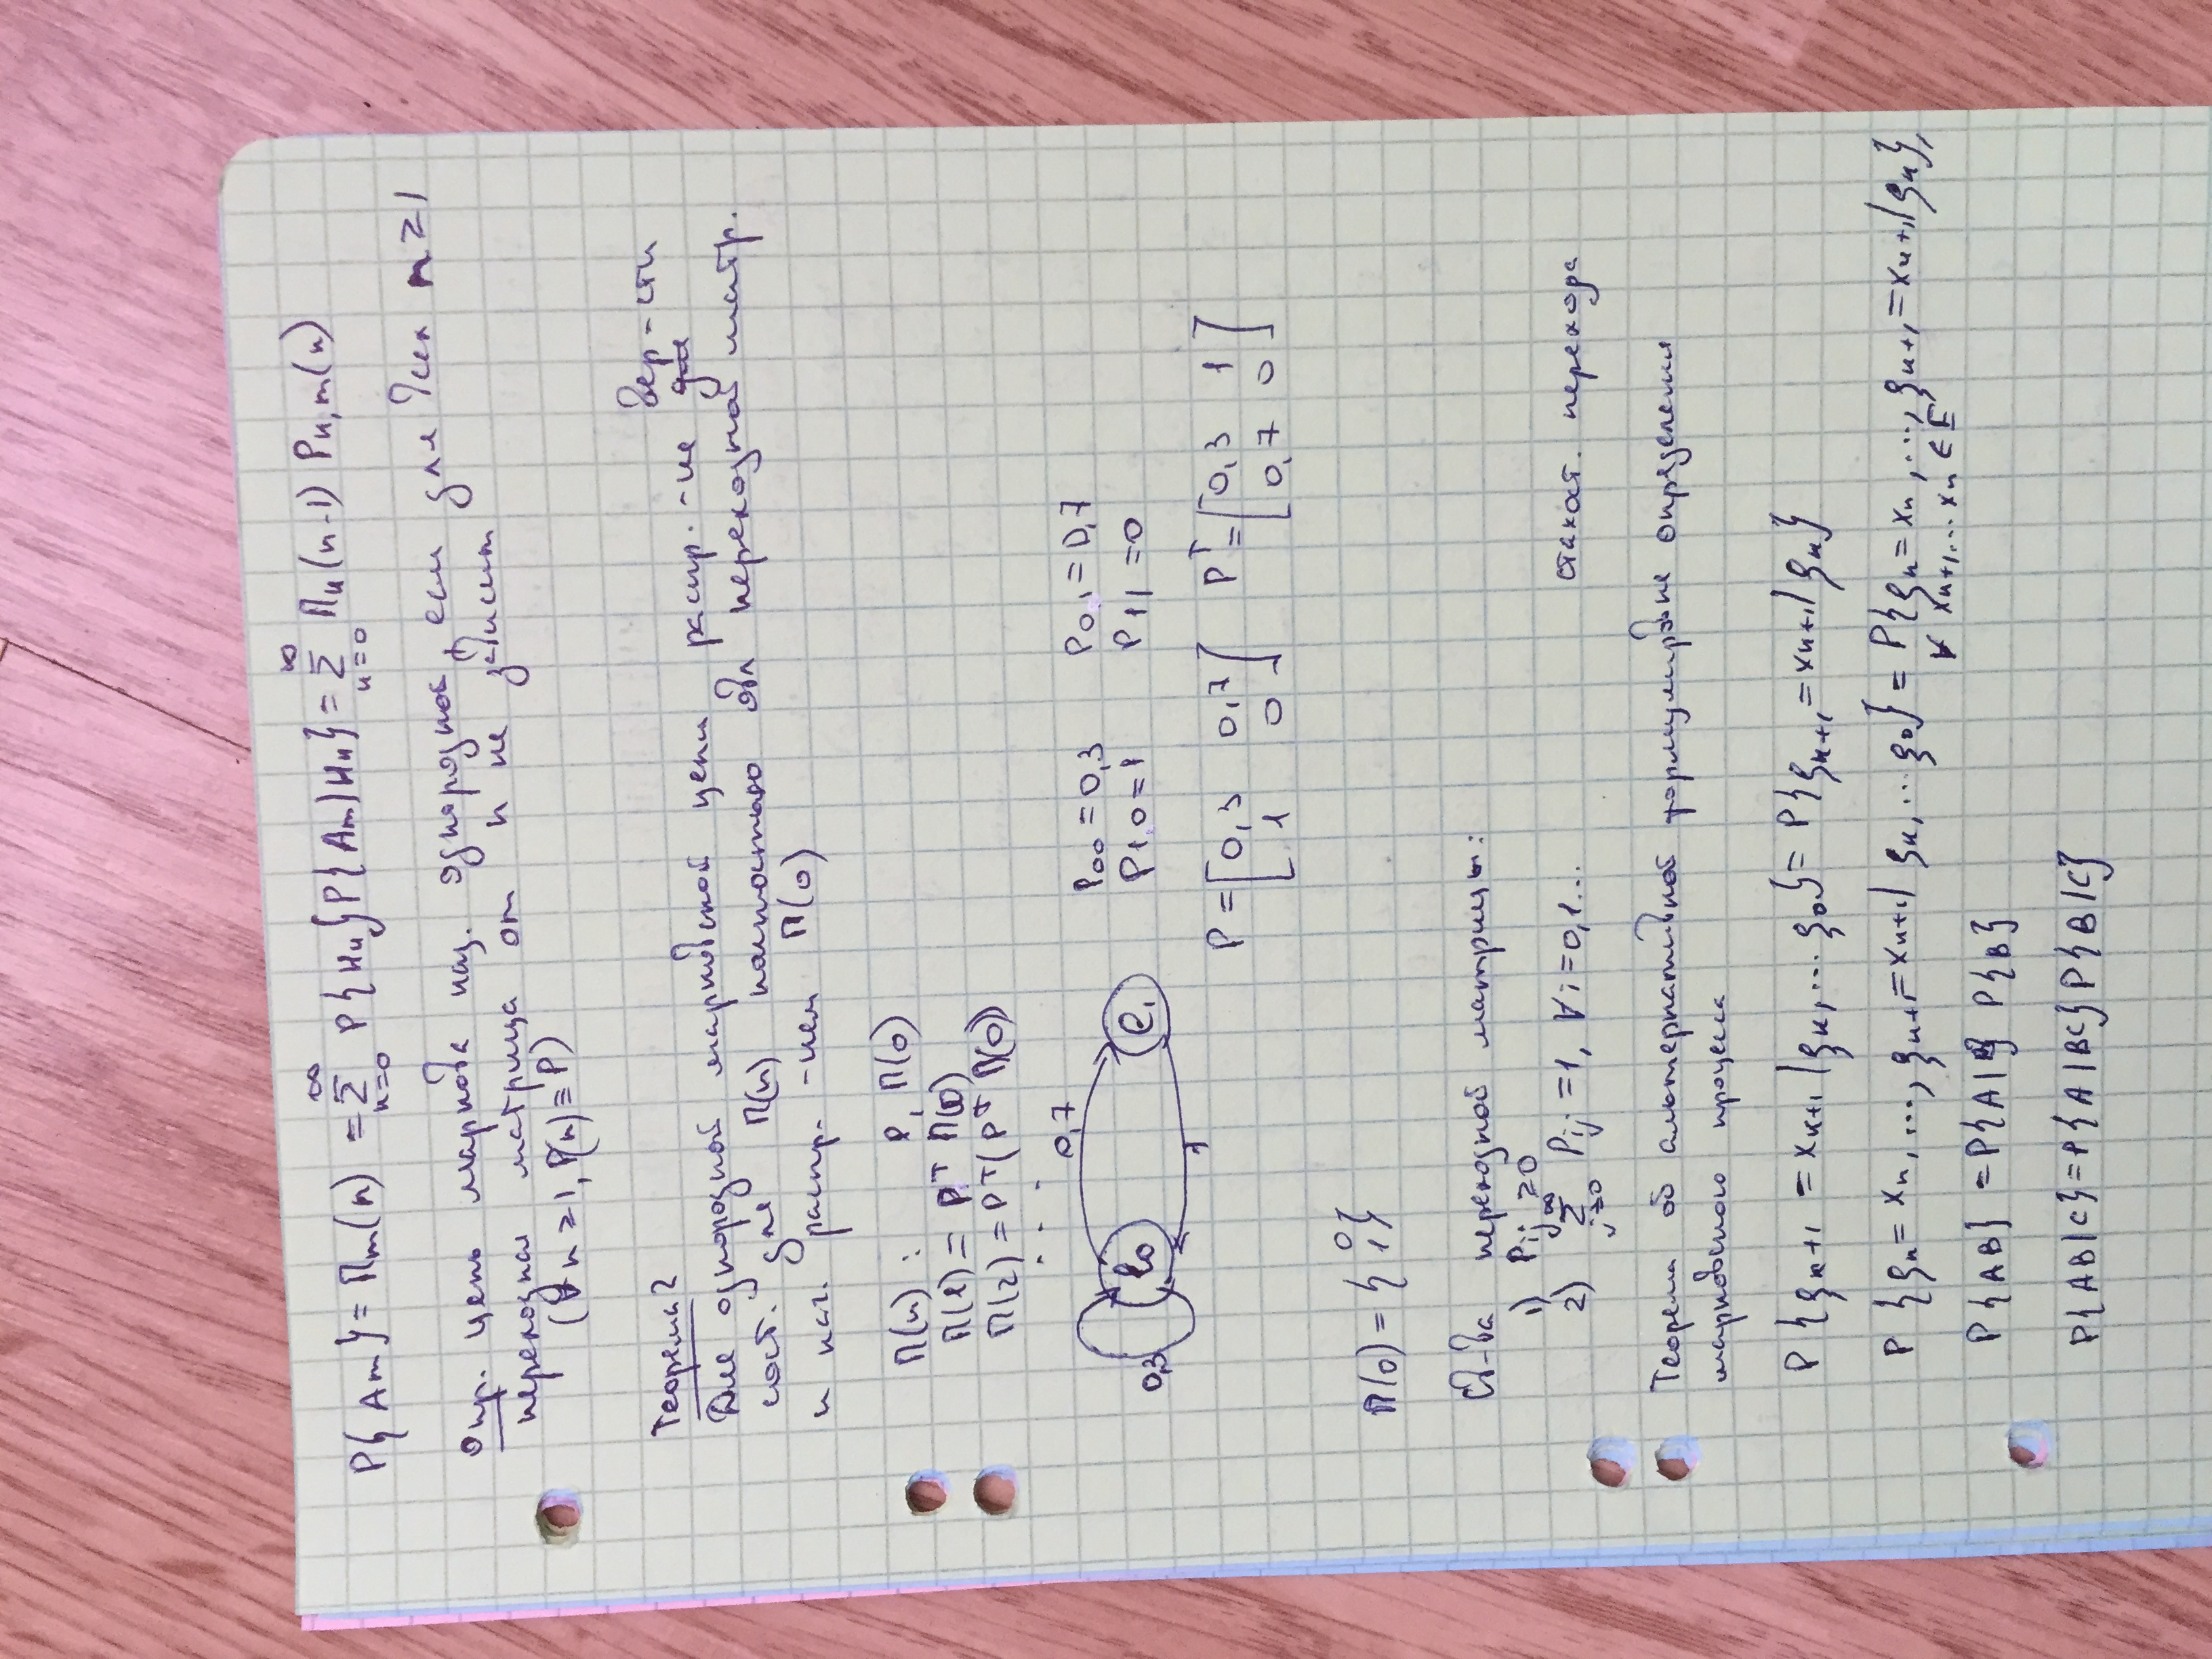 P{Am} = Пm(n) = ∑_{n=0}^{∞} P{Hn}P{Am|Hn} = ∑_{n=0}^{∞} Пn(n-1) Pn,m(n)
Опр. цепь маркова наз. однородной, если для всех n≥1
переходная матрица от n не зависит
(∀n≥1, P(n)≡P)
Теорема 2
Для однородной марковской цепи распр.-ие вер-сти
сост. для П(n) полностью опр переходной матр.
и нач. распр.-ием П(0)
П(n): P, П(0)
П(1) = Pᵀ П(0)
П(2) = Pᵀ(Pᵀ П(0))
. . .
0,7
0,3 e0 e1
1
P00=0,3 P0,1=0,7
P1,0=1 P11=0
P=[0,3 0,7] Pᵀ=[0,3 1]
[1 0] [0,7 0]
П(0) = {0
1}
Св-ва переходной матрицы:
1) Pij≥0
2) ∑_{j=0}^{∞} Pij=1, ∀i=0,1... стахост. перехода
Теорема об альтернативной формулировке определения
марковского процесса
P{ξn+1 = xn+1|ξn,...ξ0}= P{ξn+1=xn+1|ξn}
P{ξn=xn,...,ξn+1=xn+1|ξn,...ξ0} = P{ξn=xn,...,ξn+1=xn+1|ξn},
∀ xn+1,...xn ∈ E
P{AB} =P{A|B} P{B}
P{AB|C}=P{A|BC}P{B|C}